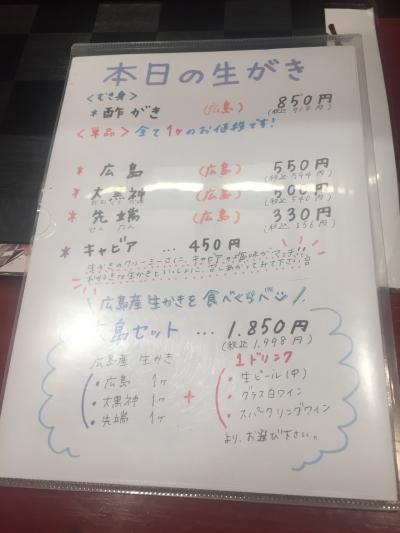 本日の生がき
<むき身>
*酢がき (広島) 850円
(税込 918円)
<単品> 全て1ヶのお値段です!
* 広島 (広島) 550円
(税込 594円)
* 大黒神 (広島) 500円
(税込 540円)
* 先端 (広島) 330円
せんたん (税込 356円)
* キャビア … 450円
生がきのクリーミーさに、キャビアの塩味が
お好きな生がきといっしょに、召しあがってみて下さい
広島産生がきを食べくらべ
島セット … 1.850円
(税込 1.998円)
広島産 生がき
・広島 1ヶ
・大黒神 1ヶ
・先端 1ヶ
+
1ドリンク
・生ビール(中)
・グラス白ワイン
・スパークリングワイン
より、お選び下さい。